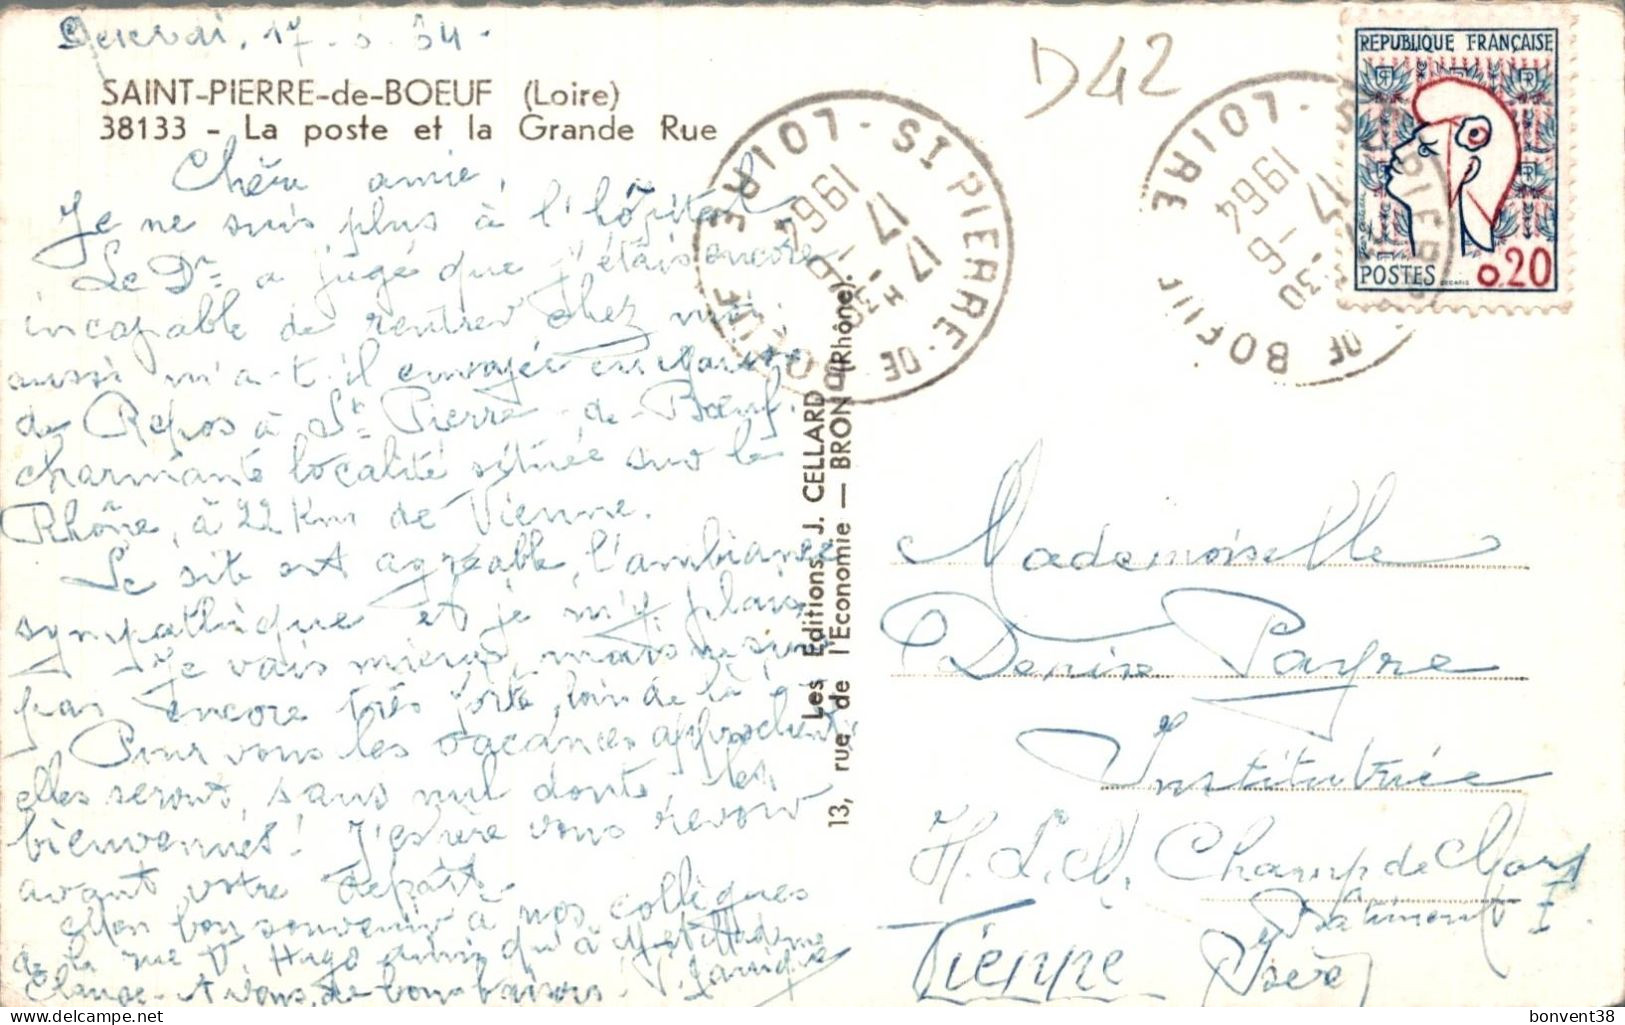 17 - 6 - 64 -
SAINT-PIERRE-de-BOEUF (Loire)
38133 - La poste et la Grande Rue
Chère amie,
Je ne suis plus à l'hôpital
Le Dr a jugé que j'étais encore
incapable de rentrer chez moi,
aussi m'a-t-il envoyée en Maison
de Repos à St Pierre-de-Bœuf.
charmante localité située sur le
Rhône, à 22 Km de Vienne.
Le site est agréable, l'ambiance
sympathique et je m'y plais,
Je vais mieux, mais ne suis
pas encore très forte, loin de là
Pour vous les vacances approchent,
elles seront, sans nul doute, les
bienvenues! J'espère vous revoir
avant votre départ.
Mon bon souvenir à nos collègues
de la rue V. Hugo ainsi qu'à M et Madame
Claude et à vous, de bons baisers
D42
ST PIERRE-DE-BOEUF - LOIRE
17 H 30
17 - 6
1964
ST PIERRE-DE-BOEUF - LOIRE
17 H 30
17 - 6
1964
REPUBLIQUE FRANÇAISE
POSTES
0.20
DECARIS
Les Editions J. CELLARD
13, rue de l'Economie — BRON (Rhône).
Mademoiselle
Denise Payre
Institutrice
H. L. M. Champ de Mars
Bâtiment I
Vienne
Isère
bonvent38